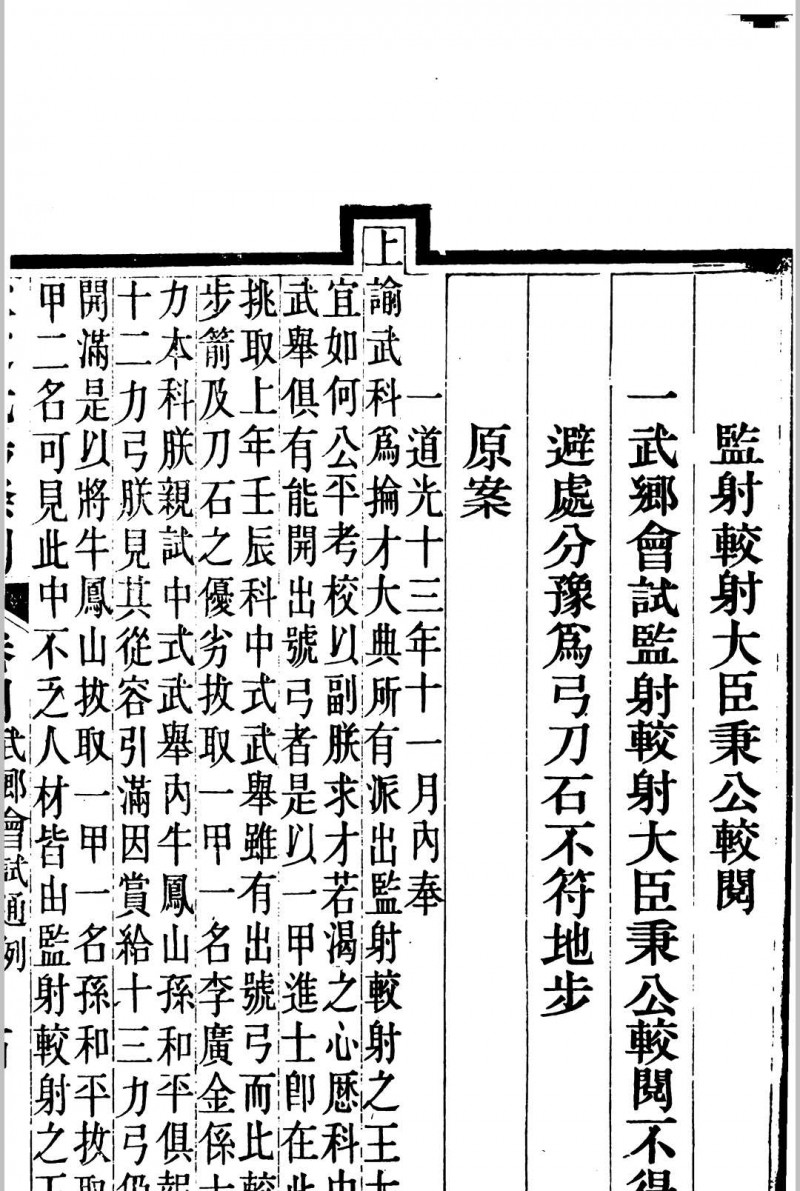 監射較射大臣秉公較閱
一武鄉會試監射較射大臣秉公較閱不得
避處分豫爲弓刀石不符地步
原案
一道光十三年十一月內奉
上諭武科爲掄才大典所有派出監射較射之王大
宜如何公平考校以副朕求才若渴之心歷科中
武舉俱有能開出號弓者是以一甲進士卽在此
挑取上年壬辰科中式武舉雖有出號弓而比較
步箭及刀石之優劣拔取一甲一名李廣金係十
力本科朕親試中式武舉內牛鳳山孫和平俱報
十二力弓朕見其從容引滿因賞給十三力弓仍
開滿是以將牛鳳山拔取一甲一名孫和平拔取
甲二名可見此中不乏人材皆由監射較射之王
武鄉會試通例